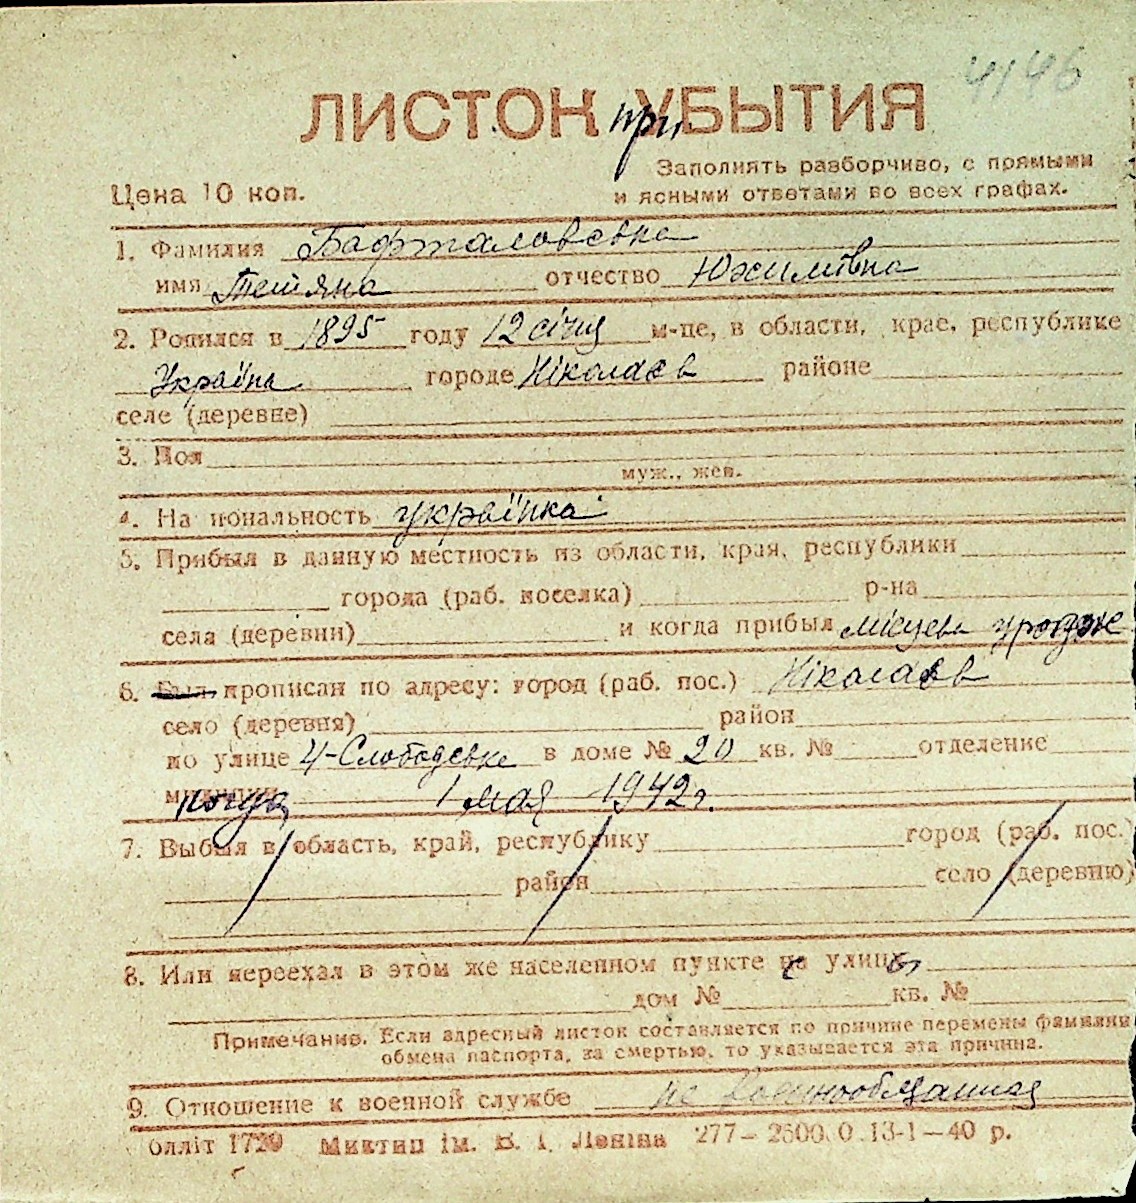 4146
ЛИСТОК при УБЫТИЯ
Заполнять разборчиво, с прямыми
Цена 10 коп.
и ясными ответами во всех графах.
1. Фамилия Бафталовська
имя Тетяна отчество Юхимівна
2. Родился в 1895 году 12 січня м-це, в области, крае, республике
Україна городе Ніколаєв районе
селе (деревне)
3. Пол
муж., жен.
4. Национальность українка
5. Прибыл в данную местность из области, края, республики
города (раб. поселка) р-на
села (деревни) и когда прибыл місцева
6. Был прописан по адресу: город (раб. пос.) Ніколаєв
село (деревня) район
по улице 4-Слободська в доме № 20 кв. № отделение
милиции когда 1 мая 1942 г.
7. Выбыл в область, край, республику город (раб. пос.)
район село (деревню)
8. Или переехал в этом же населенном пункте с улицы
дом № кв. №
Примечание. Если адресный листок составляется по причине перемены фамилии
обмена паспорта, за смертью, то указывается эта причина.
9. Отношение к военной службе не военнообязанная
облліт 1720 Миктип ім. В. І. Леніна 277—2500.0 13-1—40 р.